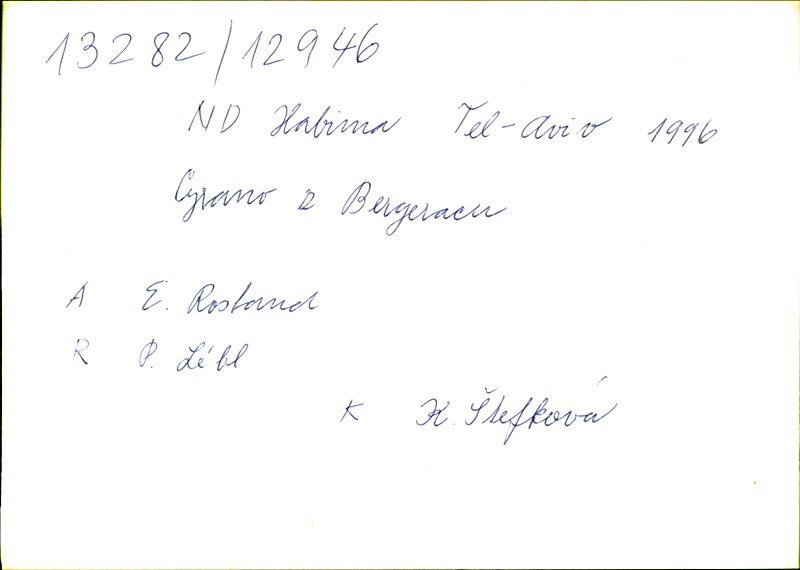 13282/12946
ND Habima Tel-Aviv 1996
Cyrano z Bergeracu
A E. Rostand
R P. Lébl
K K. Štefková